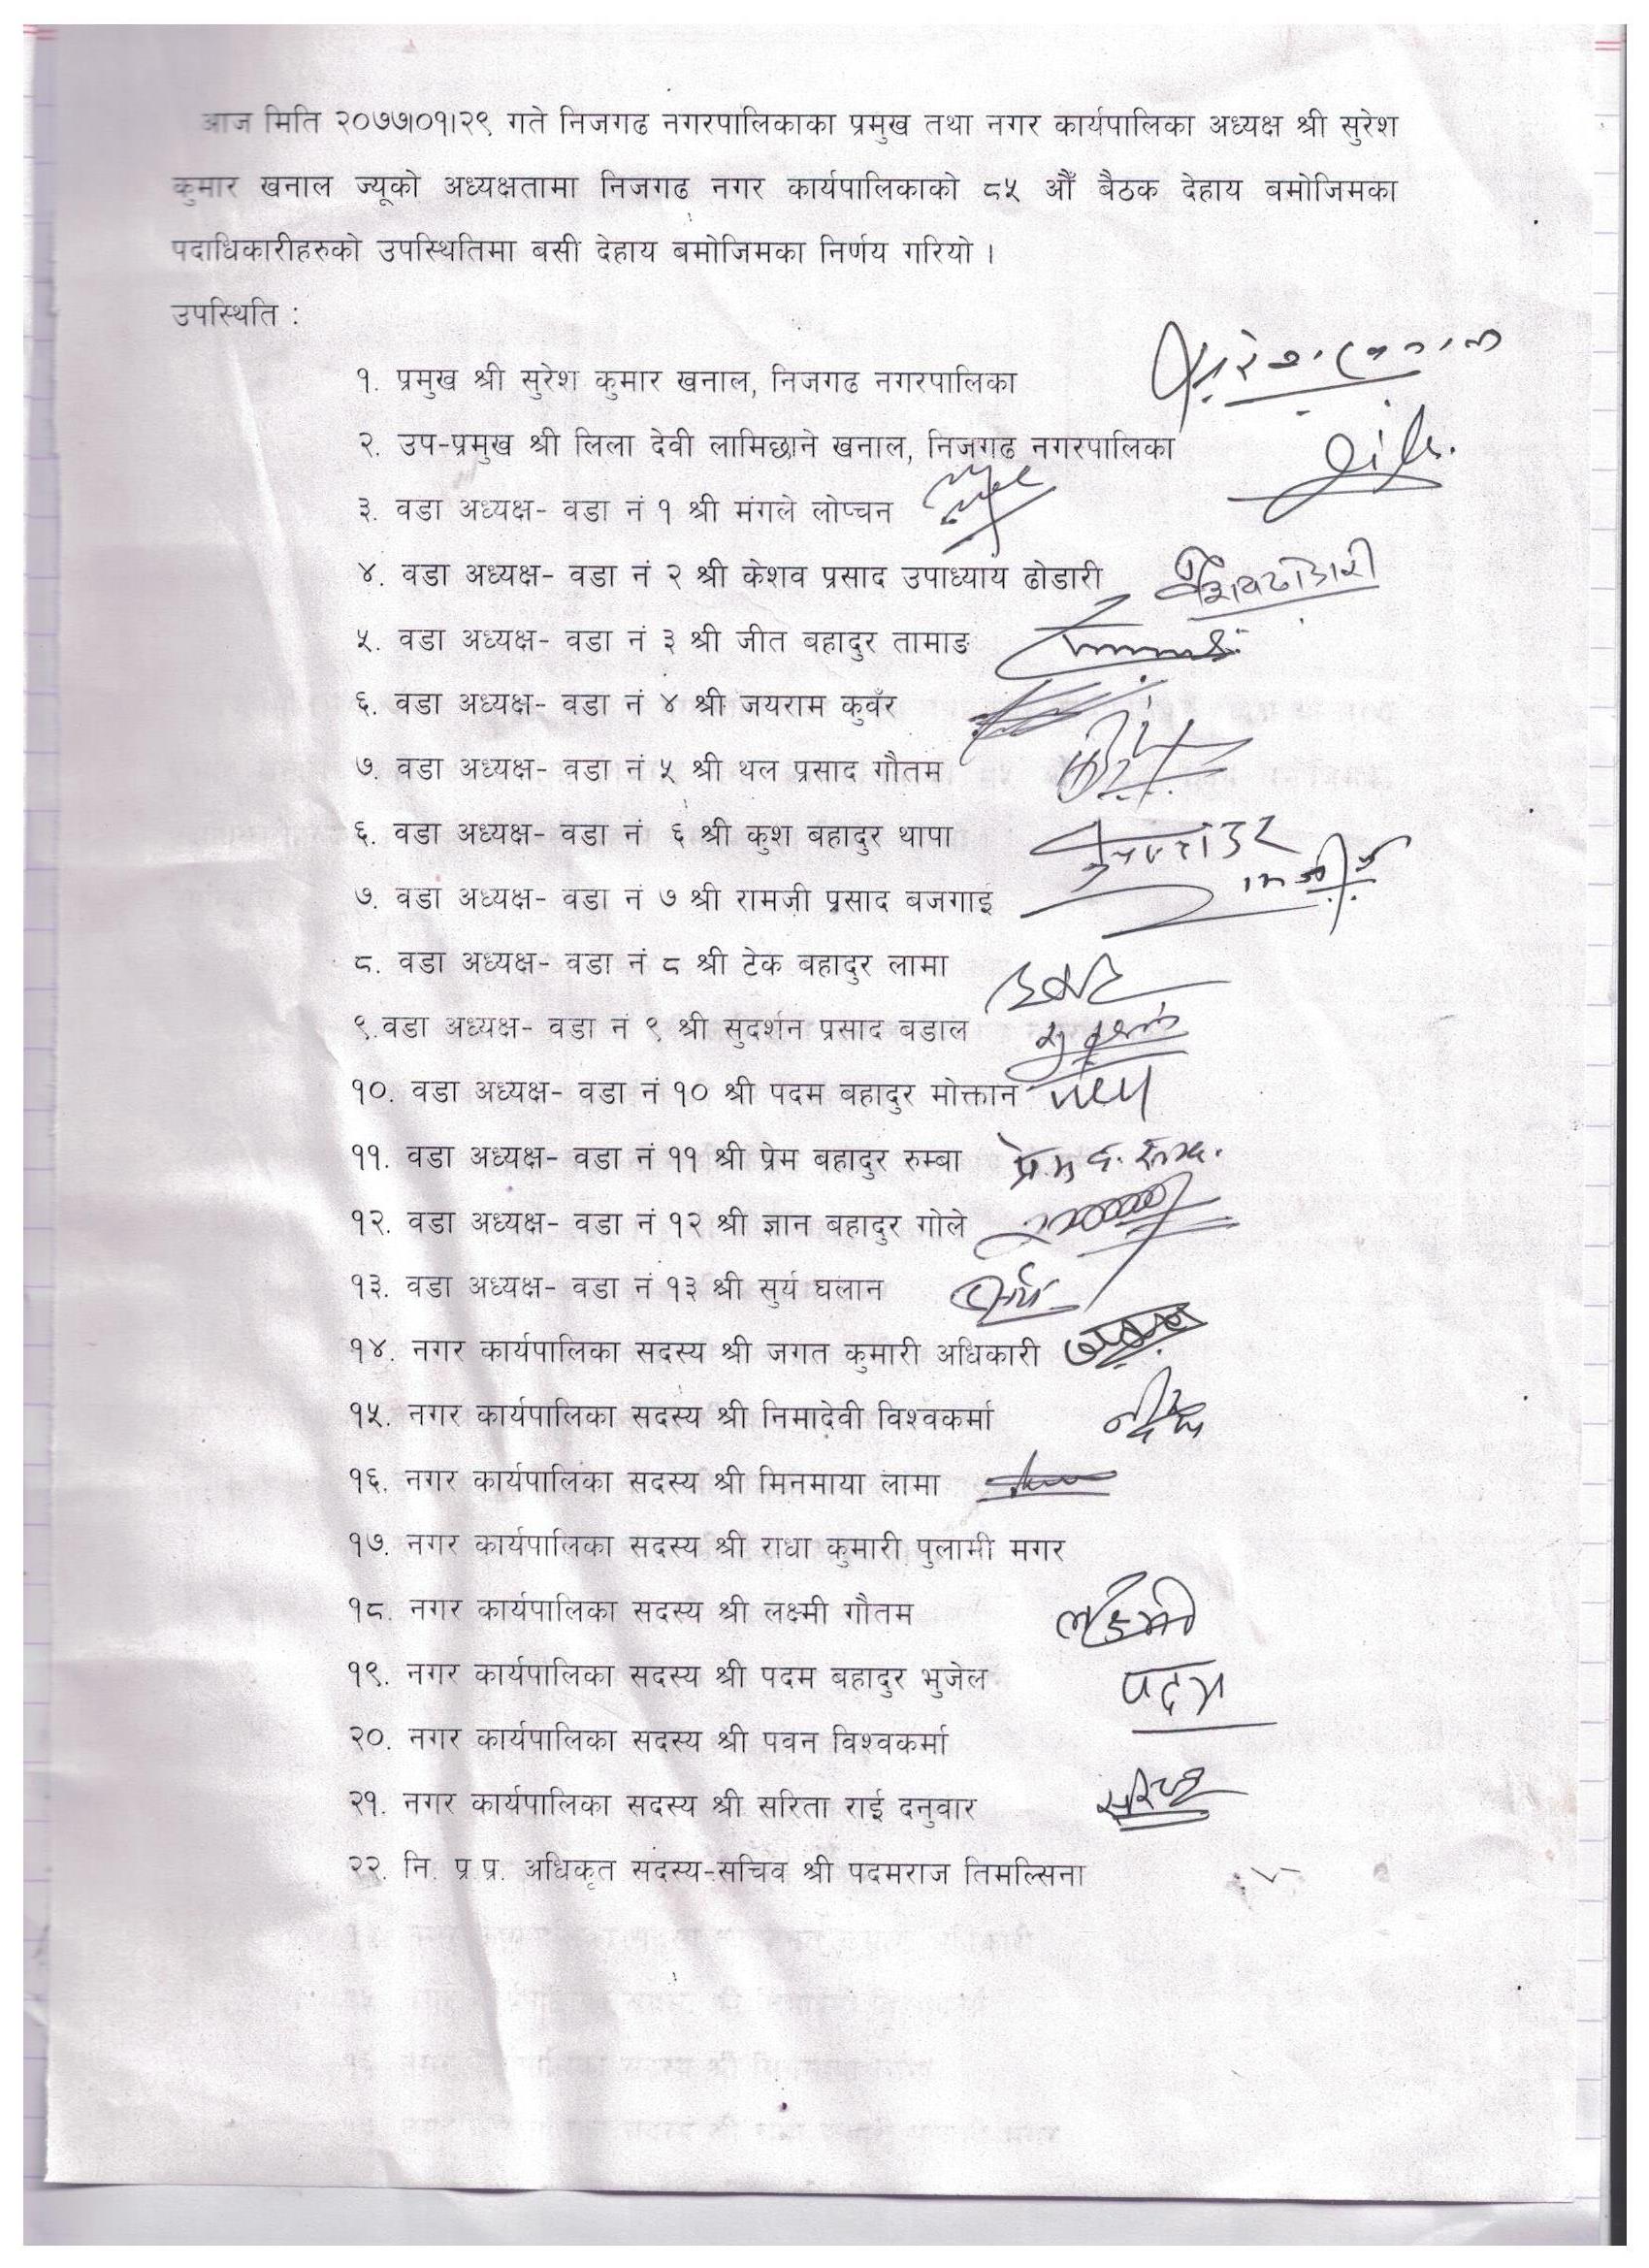 आज मिति २०७७।०१।२९ गते निजगढ नगरपालिकाका प्रमुख तथा नगर कार्यपालिका अध्यक्ष श्री सुरेश
कुमार खनाल ज्यूको अध्यक्षतामा निजगढ नगर कार्यपालिकाको ८५ औँ बैठक देहाय बमोजिमका
पदाधिकारीहरुको उपस्थितिमा बसी देहाय बमोजिमका निर्णय गरियो ।
उपस्थिति :
१. प्रमुख श्री सुरेश कुमार खनाल, निजगढ नगरपालिका
२. उप-प्रमुख श्री लिला देवी लामिछाने खनाल, निजगढ नगरपालिका
३. वडा अध्यक्ष- वडा नं १ श्री मंगले लोप्चन
४. वडा अध्यक्ष- वडा नं २ श्री केशव प्रसाद उपाध्याय ढोडारी
५. वडा अध्यक्ष- वडा नं ३ श्री जीत बहादुर तामाङ
६. वडा अध्यक्ष- वडा नं ४ श्री जयराम कुवँर
७. वडा अध्यक्ष- वडा नं ५ श्री थल प्रसाद गौतम
६. वडा अध्यक्ष- वडा नं ६ श्री कुश बहादुर थापा
७. वडा अध्यक्ष- वडा नं ७ श्री रामजी प्रसाद बजगाई
८. वडा अध्यक्ष- वडा नं ८ श्री टेक बहादुर लामा
९.वडा अध्यक्ष- वडा नं ९ श्री सुदर्शन प्रसाद बडाल
१०. वडा अध्यक्ष- वडा नं १० श्री पदम बहादुर मोक्तान
११. वडा अध्यक्ष- वडा नं ११ श्री प्रेम बहादुर रुम्बा
१२. वडा अध्यक्ष- वडा नं १२ श्री ज्ञान बहादुर गोले
१३. वडा अध्यक्ष- वडा नं १३ श्री सुर्य घलान
१४. नगर कार्यपालिका सदस्य श्री जगत कुमारी अधिकारी
१५. नगर कार्यपालिका सदस्य श्री निमादेवी विश्वकर्मा
१६. नगर कार्यपालिका सदस्य श्री मिनमाया लामा
१७. नगर कार्यपालिका सदस्य श्री राधा कुमारी पुलामी मगर
१८. नगर कार्यपालिका सदस्य श्री लक्ष्मी गौतम
१९. नगर कार्यपालिका सदस्य श्री पदम बहादुर भुजेल पदम
२०. नगर कार्यपालिका सदस्य श्री पवन विश्वकर्मा
२१. नगर कार्यपालिका सदस्य श्री सरिता राई दनुवार
२२. नि. प्र.प्र. अधिकृत सदस्य-सचिव श्री पदमराज तिमल्सिना